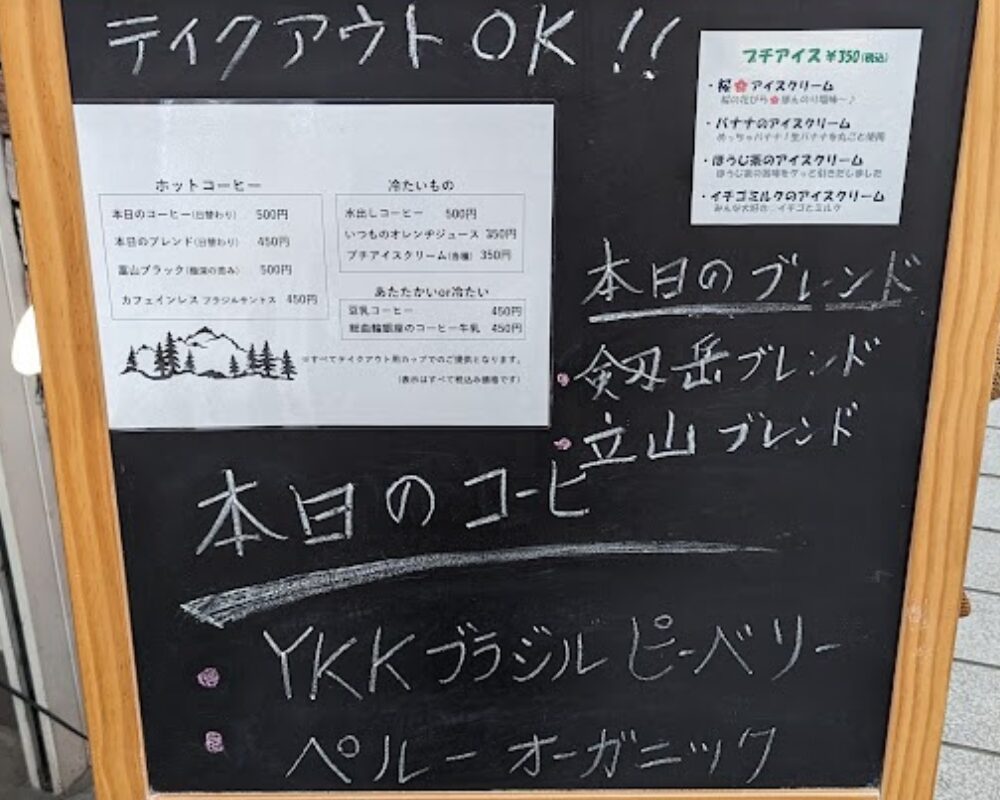 テイクアウト OK!!
プチアイス ¥350(税込)
・桜アイスクリーム
桜の花びら ほんのり塩味〜♪
・バナナのアイスクリーム
めっちゃバナナ!生バナナを丸ごと使用
・ほうじ茶のアイスクリーム
ほうじ茶の旨味をグッと引きだしました
・イチゴミルクのアイスクリーム
みんな大好き イチゴとミルク
ホットコーヒー
本日のコーヒー(日替わり) 500円
本日のブレンド(日替わり) 450円
富山ブラック(極深の恵み) 500円
カフェインレス ブラジルサントス 450円
冷たいもの
水出しコーヒー 500円
いつものオレンヂジュース 350円
プチアイスクリーム(各種) 350円
あたたかいor冷たい
豆乳コーヒー 450円
総曲輪銀座のコーヒー牛乳 450円
※すべてテイクアウト用カップでのご提供となります。
(表示はすべて税込み価格です)
本日のブレンド
剱岳ブレンド
立山ブレンド
本日のコーヒ
YKKブラジルピーベリー
ペルーオーガニック